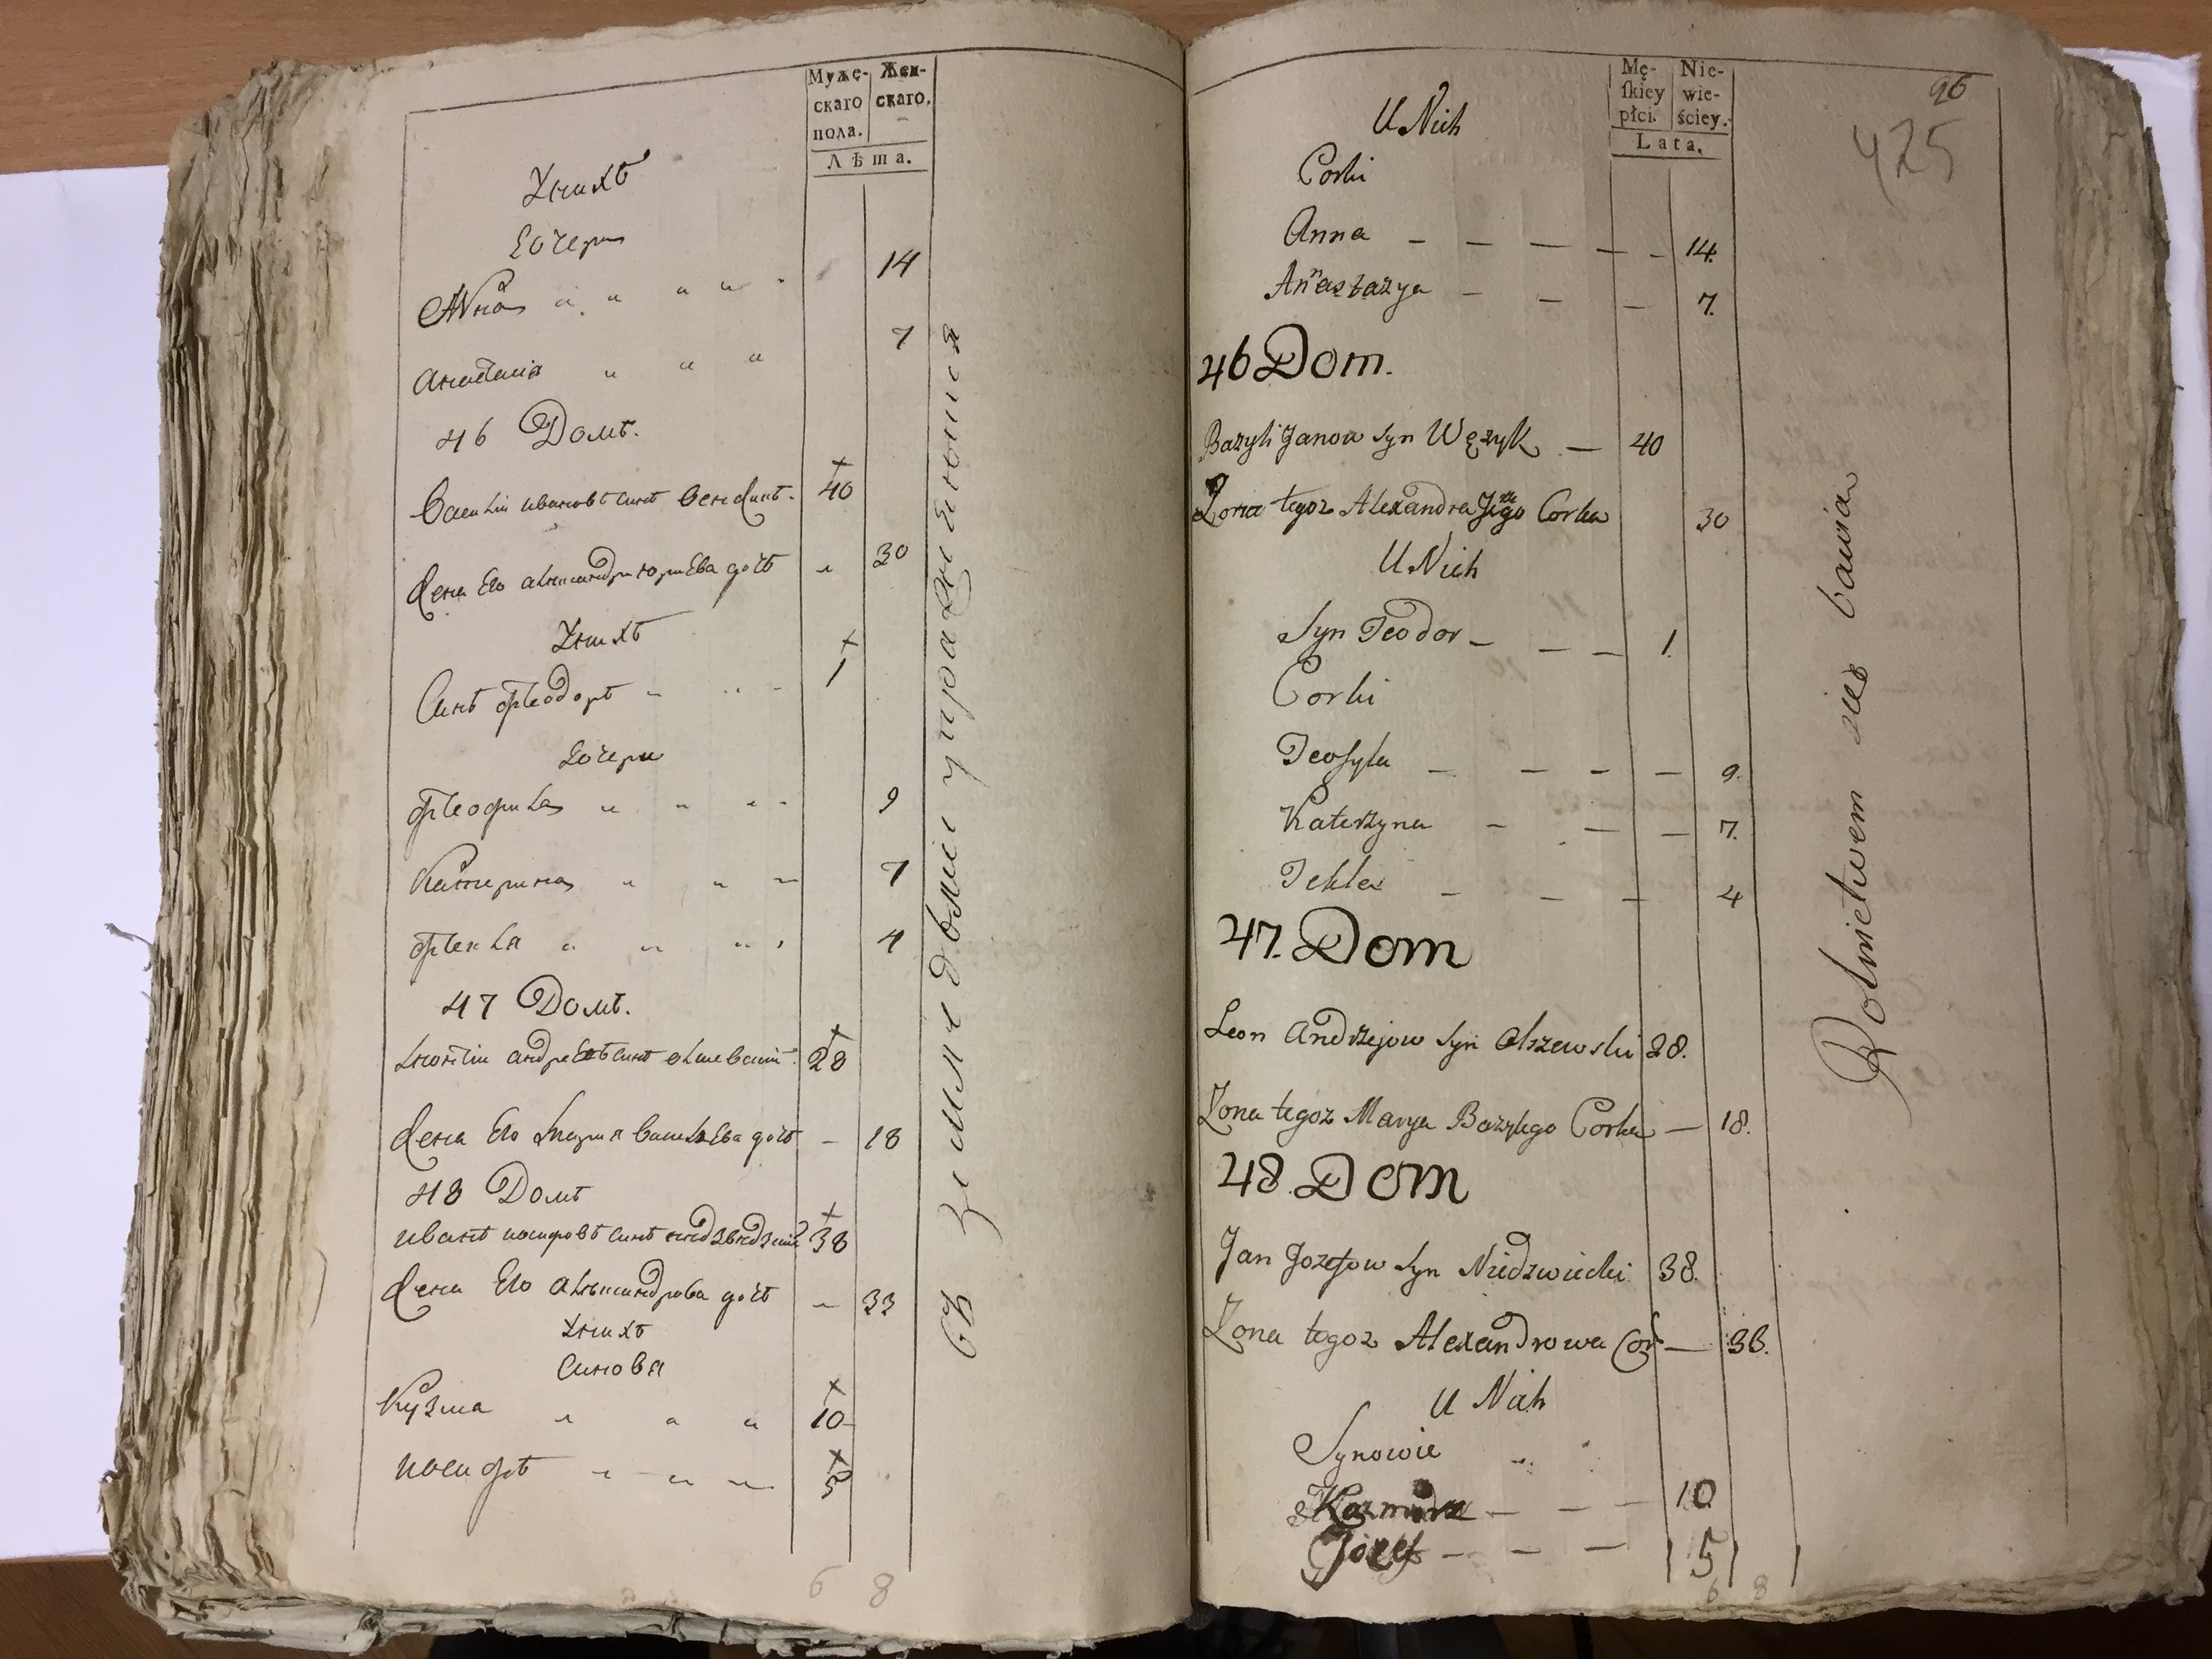 Муже-
скаго
пола.
Жен-
скаго.
Лѣта.
У нихъ
Дочери
Анна 14
Анастасія 7
46 Домъ.
Василій Ивановъ синъ Вензикъ. 40
Жена Его Александра Юріева дочъ 30
У нихъ
Синъ Ѳеодоръ 1
Дочери
Ѳеофила 9
Катерина 7
Ѳекла 4
47 Домъ.
Леонтій Андреевъ синъ Олшевский 28
Жена Его Марія Васильева дочъ 18
48 Домъ
Иванъ Иосифовъ синъ Недзведзкий 38
Жена Его Александрова дочъ 33
У нихъ
Синова
Кузма 10
Иосифъ 5
6 8
Въ Земледѣліи упражняются
96
425
Mę-
skiey
płci.
Nie-
wie-
ściey.
Lata.
U Nich
Corki
Anna — — — — — 14.
Annastazya — — — 7.
46 Dom.
Bazyli Janow Syn Wężyk — 40
Zona tegoz Alexandra Jerzego Corka 30
U Nich
Syn Teodor — — — 1.
Corki
Teofyla — — — — 9.
Katerzyna — — — 7.
Tekla — — — 4
47. Dom
Leon Andrzejow Syn Olszewski 28.
Zona tegoz Marya Bazylego Corka — 18.
48. Dom
Jan Jozefow Syn Niedzwiecki 38.
Zona tegoz Alexandrowa Cor — 36.
U Nich
Synowie
— — — 10
Jozef — — — 5
6 8
Rolnictwem się bawią